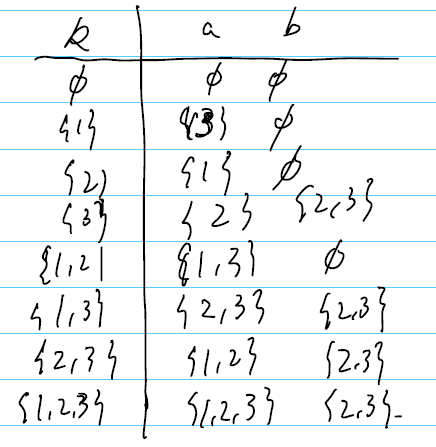 k a b
ϕ ϕ ϕ
{1} {3} ϕ
{2} {1} ϕ
{3} {2} {2,3}
{1,2} {1,3} ϕ
{1,3} {2,3} {2,3}
{2,3} {1,2} {2,3}
{1,2,3} {1,2,3} {2,3}.